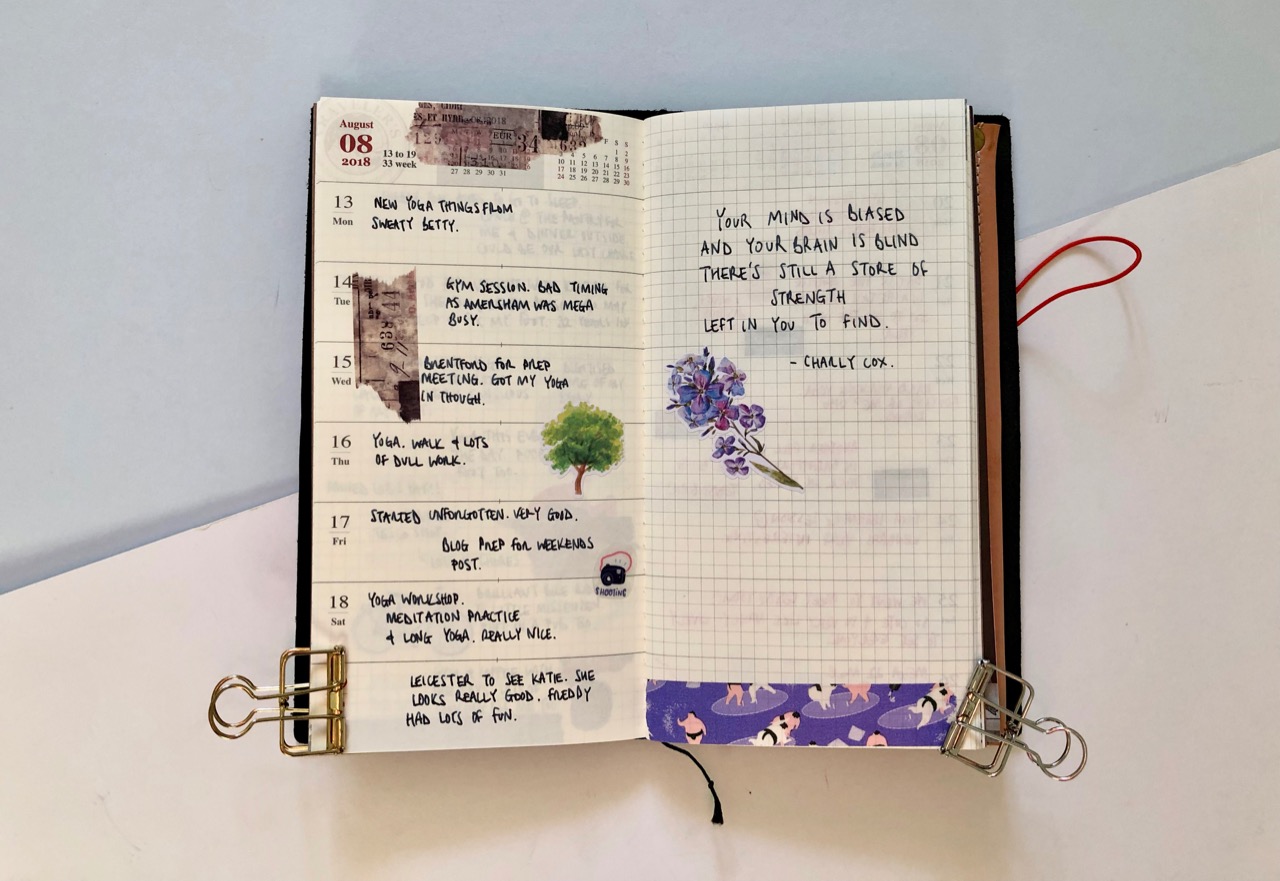 August
08
2018
13 to 19
33 week
EUR 34
27 28 29 30 31
F S S
1 2
3 4 5 6 7 8 9
10 11 12 13 14 15 16
17 18 19 20 21 22 23
24 25 26 27 28 29 30
13
Mon
NEW YOGA THINGS FROM
SWEATY BETTY.
14
Tue
GYM SESSION. BAD TIMING
AS AMERSHAM WAS MEGA
BUSY.
15
Wed
BRENTFORD FOR PREP
MEETING. GOT MY YOGA
IN THOUGH.
16
Thu
YOGA. WALK & LOTS
OF DULL WORK.
17
Fri
STARTED UNFORGOTTEN. VERY GOOD.
BLOG PREP FOR WEEKENDS
POST.
SHOOTING
18
Sat
YOGA WORKSHOP.
MEDITATION PRACTICE
& LONG YOGA. REALLY NICE.
LEICESTER TO SEE KATIE. SHE
LOOKS REALLY GOOD. FREDDY
HAD LOTS OF FUN.
YOUR MIND IS BIASED
AND YOUR BRAIN IS BLIND
THERE'S STILL A STORE OF
STRENGTH
LEFT IN YOU TO FIND.
- CHARLY COX.